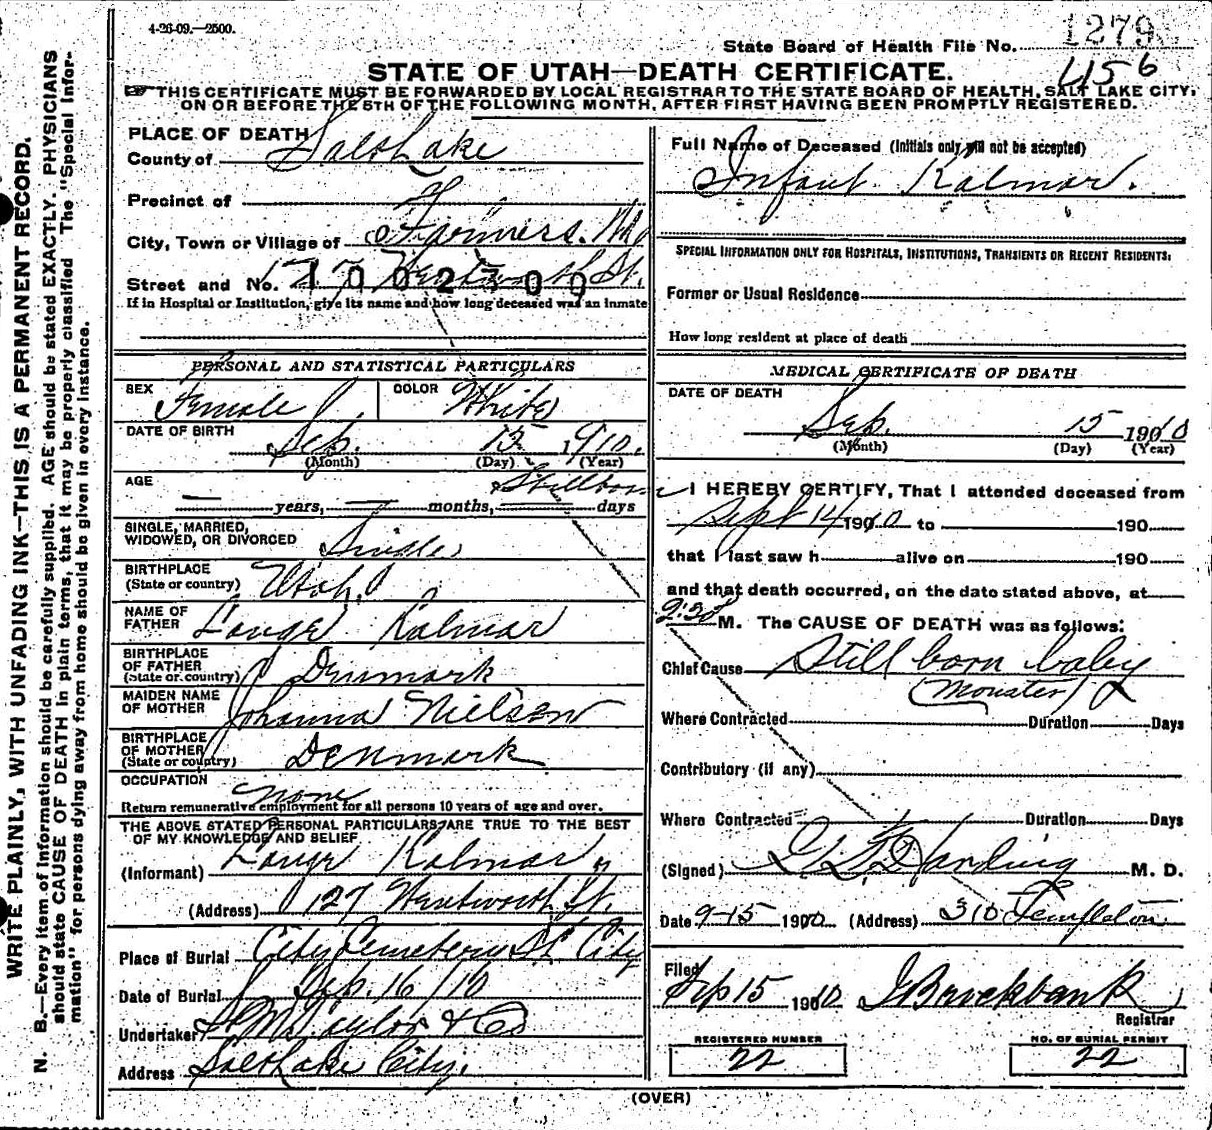 4-26-09.—2500.
1279
State Board of Health File No.
456
STATE OF UTAH—DEATH CERTIFICATE.
THIS CERTIFICATE MUST BE FORWARDED BY LOCAL REGISTRAR TO THE STATE BOARD OF HEALTH, SALT LAKE CITY,
ON OR BEFORE THE 5TH OF THE FOLLOWING MONTH, AFTER FIRST HAVING BEEN PROMPTLY REGISTERED.
WRITE PLAINLY, WITH UNFADING INK—THIS IS A PERMANENT RECORD.
N. B.—Every item of information should be carefully supplied. AGE should be stated EXACTLY. PHYSICIANS
should state CAUSE OF DEATH in plain terms, that it may be properly classified. The "Special Infor-
mation" for persons dying away from home should be given in every instance.
PLACE OF DEATH
County of Salt Lake
Precinct of
City, Town or Village of Farmers
Street and No. 127 Wentworth St.
1002300
If in Hospital or Institution, give its name and how long deceased was an inmate
PERSONAL AND STATISTICAL PARTICULARS
SEX Female COLOR White
DATE OF BIRTH Sep. 15 1910.
(Month) (Day) (Year)
AGE Stillborn
years, months, days
SINGLE, MARRIED,
WIDOWED, OR DIVORCED Single
BIRTHPLACE
(State or country) Utah
NAME OF
FATHER Lauge Kalmar
BIRTHPLACE
OF FATHER
(State or country) Denmark
MAIDEN NAME
OF MOTHER Johanna Nielsen
BIRTHPLACE
OF MOTHER
(State or country) Denmark
OCCUPATION none
Return remunerative employment for all persons 10 years of age and over.
THE ABOVE STATED PERSONAL PARTICULARS ARE TRUE TO THE BEST
OF MY KNOWLEDGE AND BELIEF
(Informant) Lauge Kalmar
(Address) 127 Wentworth St.
Place of Burial City Cemetery SL City
Date of Burial Sep. 16/10
Undertaker S. M. Taylor & Co
Address Salt Lake City.
Full Name of Deceased (Initials only will not be accepted)
Infant Kalmar.
SPECIAL INFORMATION ONLY FOR HOSPITALS, INSTITUTIONS, TRANSIENTS OR RECENT RESIDENTS:
Former or Usual Residence
How long resident at place of death
MEDICAL CERTIFICATE OF DEATH
DATE OF DEATH
Sep. 15 1910
(Month) (Day) (Year)
I HEREBY CERTIFY, That I attended deceased from
Sept 14 1910 to 190
that I last saw h alive on 190
and that death occurred, on the date stated above, at
2:30 M. The CAUSE OF DEATH was as follows:
Chief Cause Still born baby
(Monster)
Where Contracted Duration Days
Contributory (if any)
Where Contracted Duration Days
(Signed) Harding M. D.
Date 9-15 1910 (Address) 310 Templeton.
Filed Sep 15 1910 J Brockbank
Registrar
REGISTERED NUMBER
22
NO. OF BURIAL PERMIT
22
(OVER)